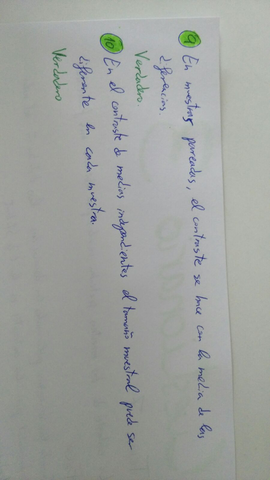 9 En muestras pareadas, el contraste se hace con la media de las
diferencias.
Verdadero.
10 En el contraste de medias independientes el tamaño muestral puede ser
diferente en cada muestra.
Verdadero